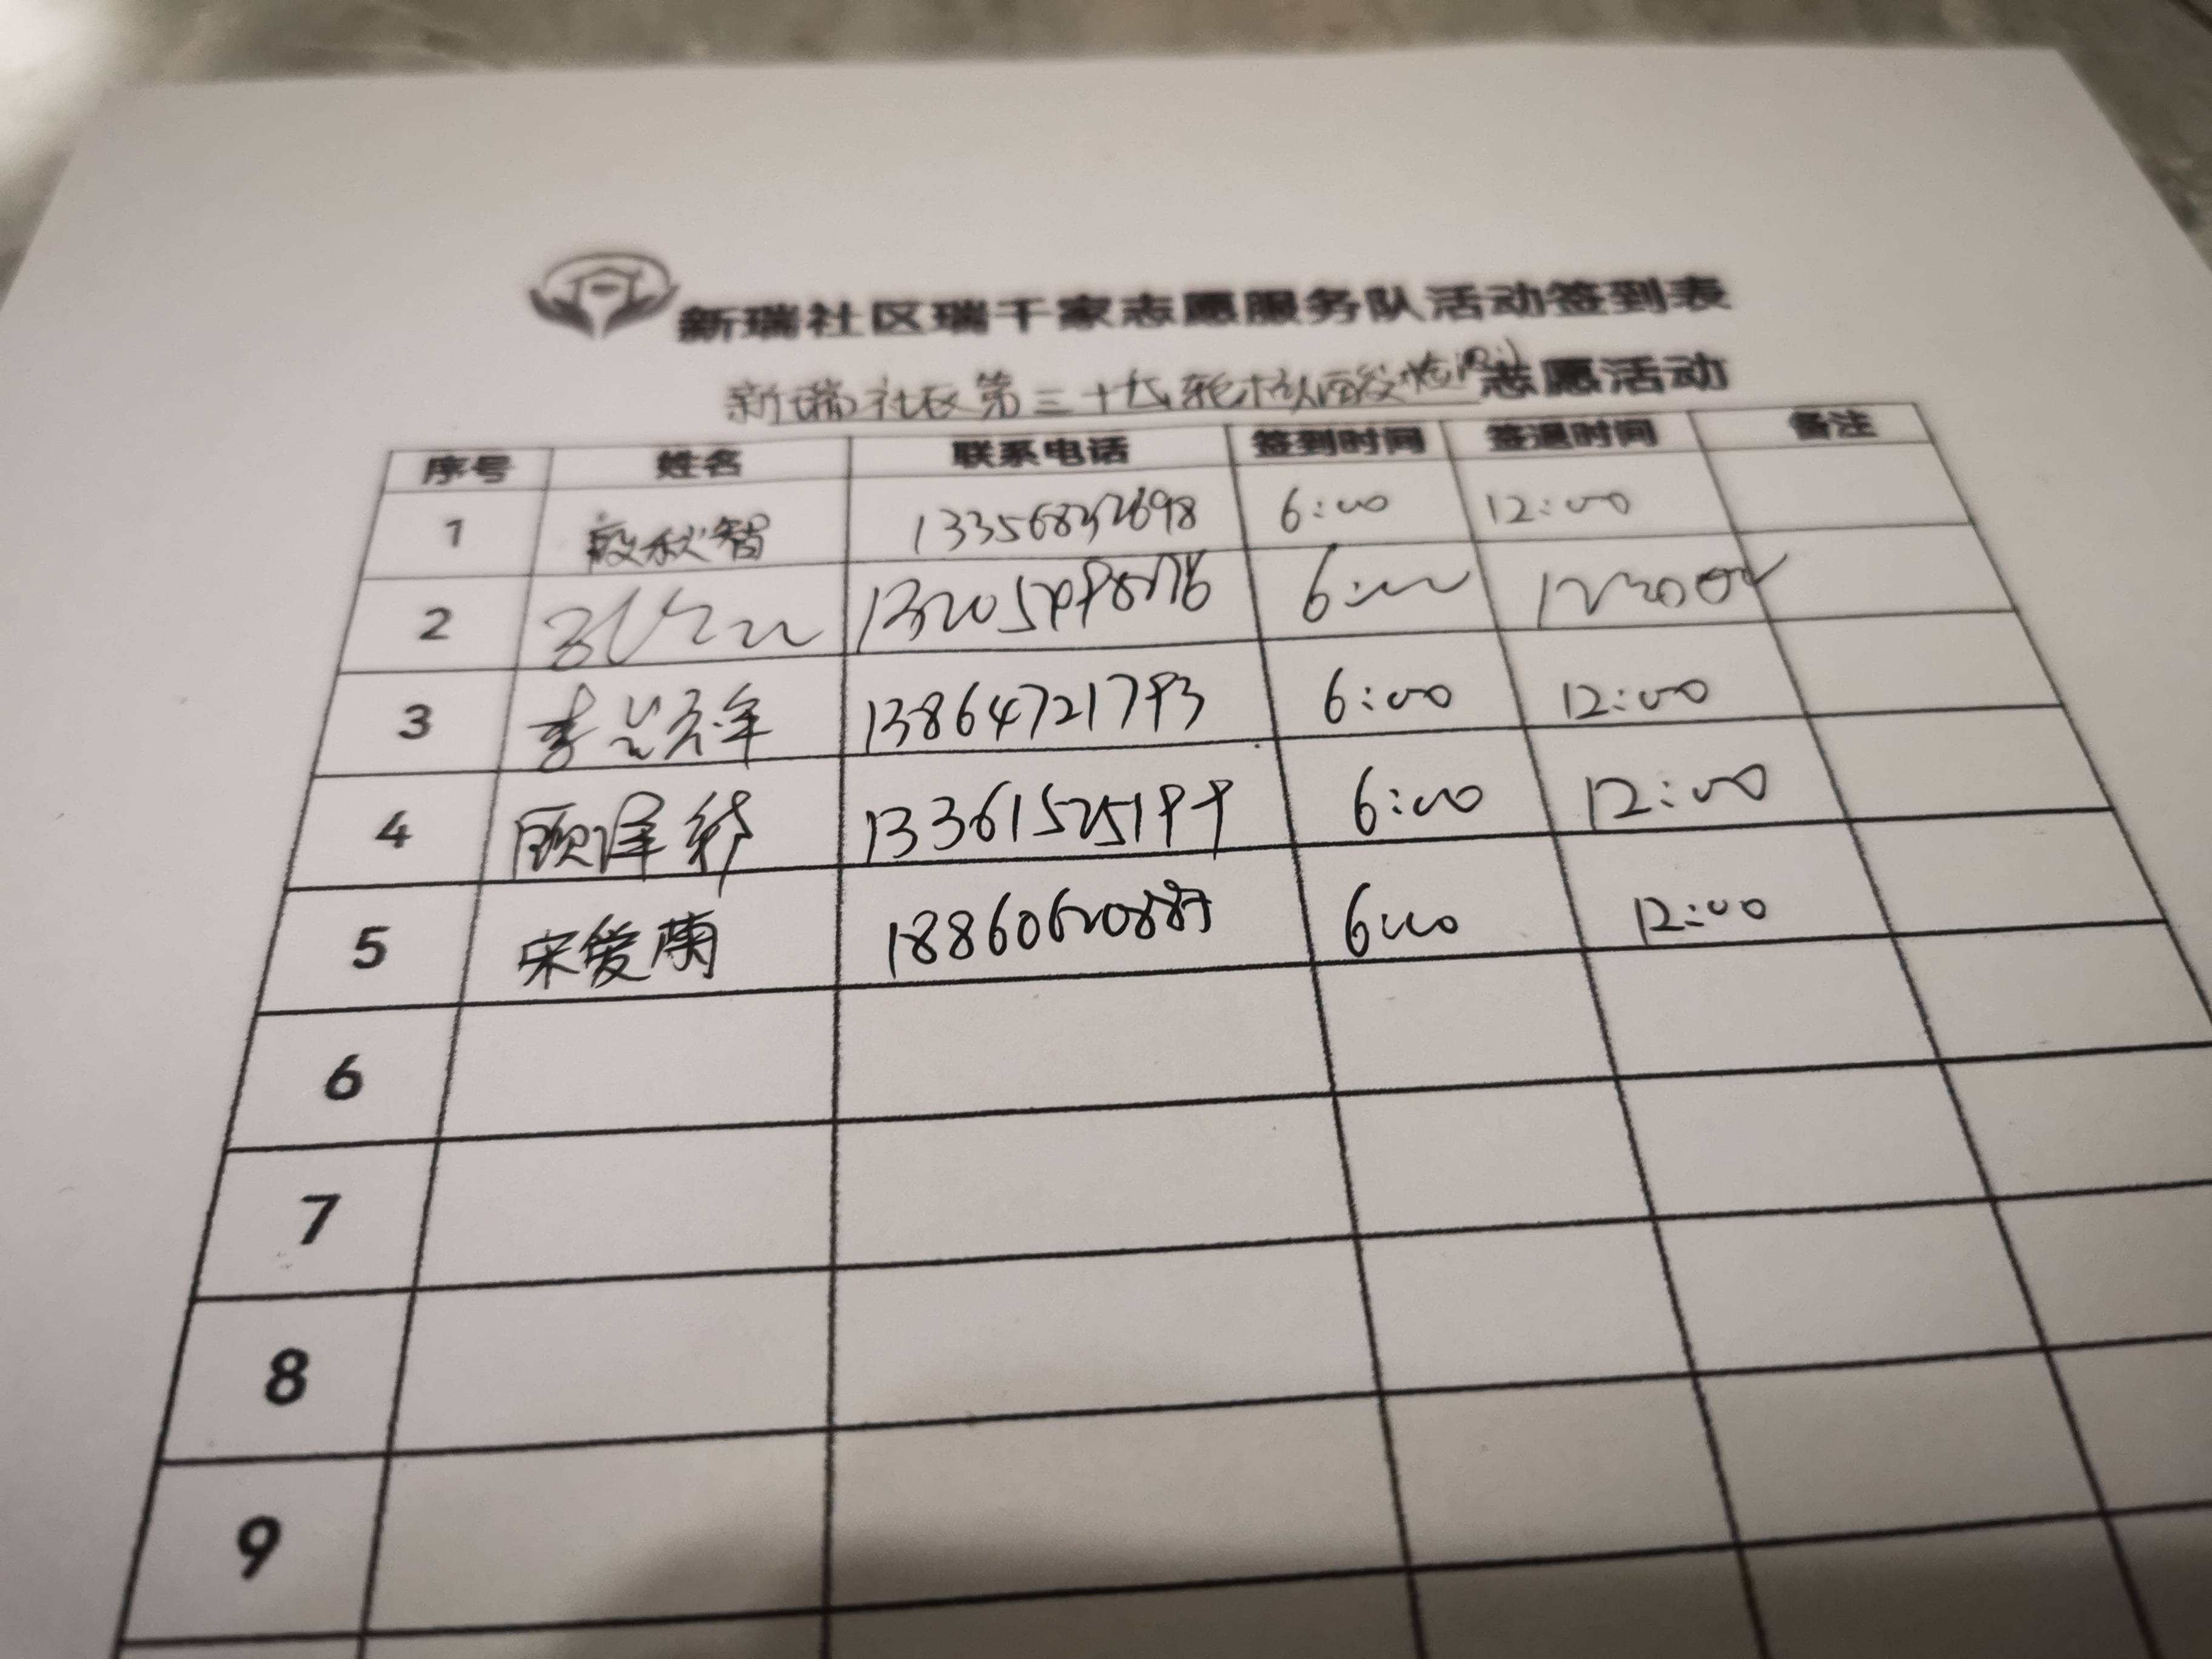 新瑞社区瑞千家志愿服务队活动签到表
新瑞社区第三十 轮核酸检测志愿活动
序号 姓名 联系电话 签到时间 签退时间 备注
1 殷秋智 13356832698 6:00 12:00
2 6:00
3 李 13864721793 6:00 12:00
4 顾泽 13361525199 6:00 12:00
5 宋爱菊 6:00 12:00
6
7
8
9